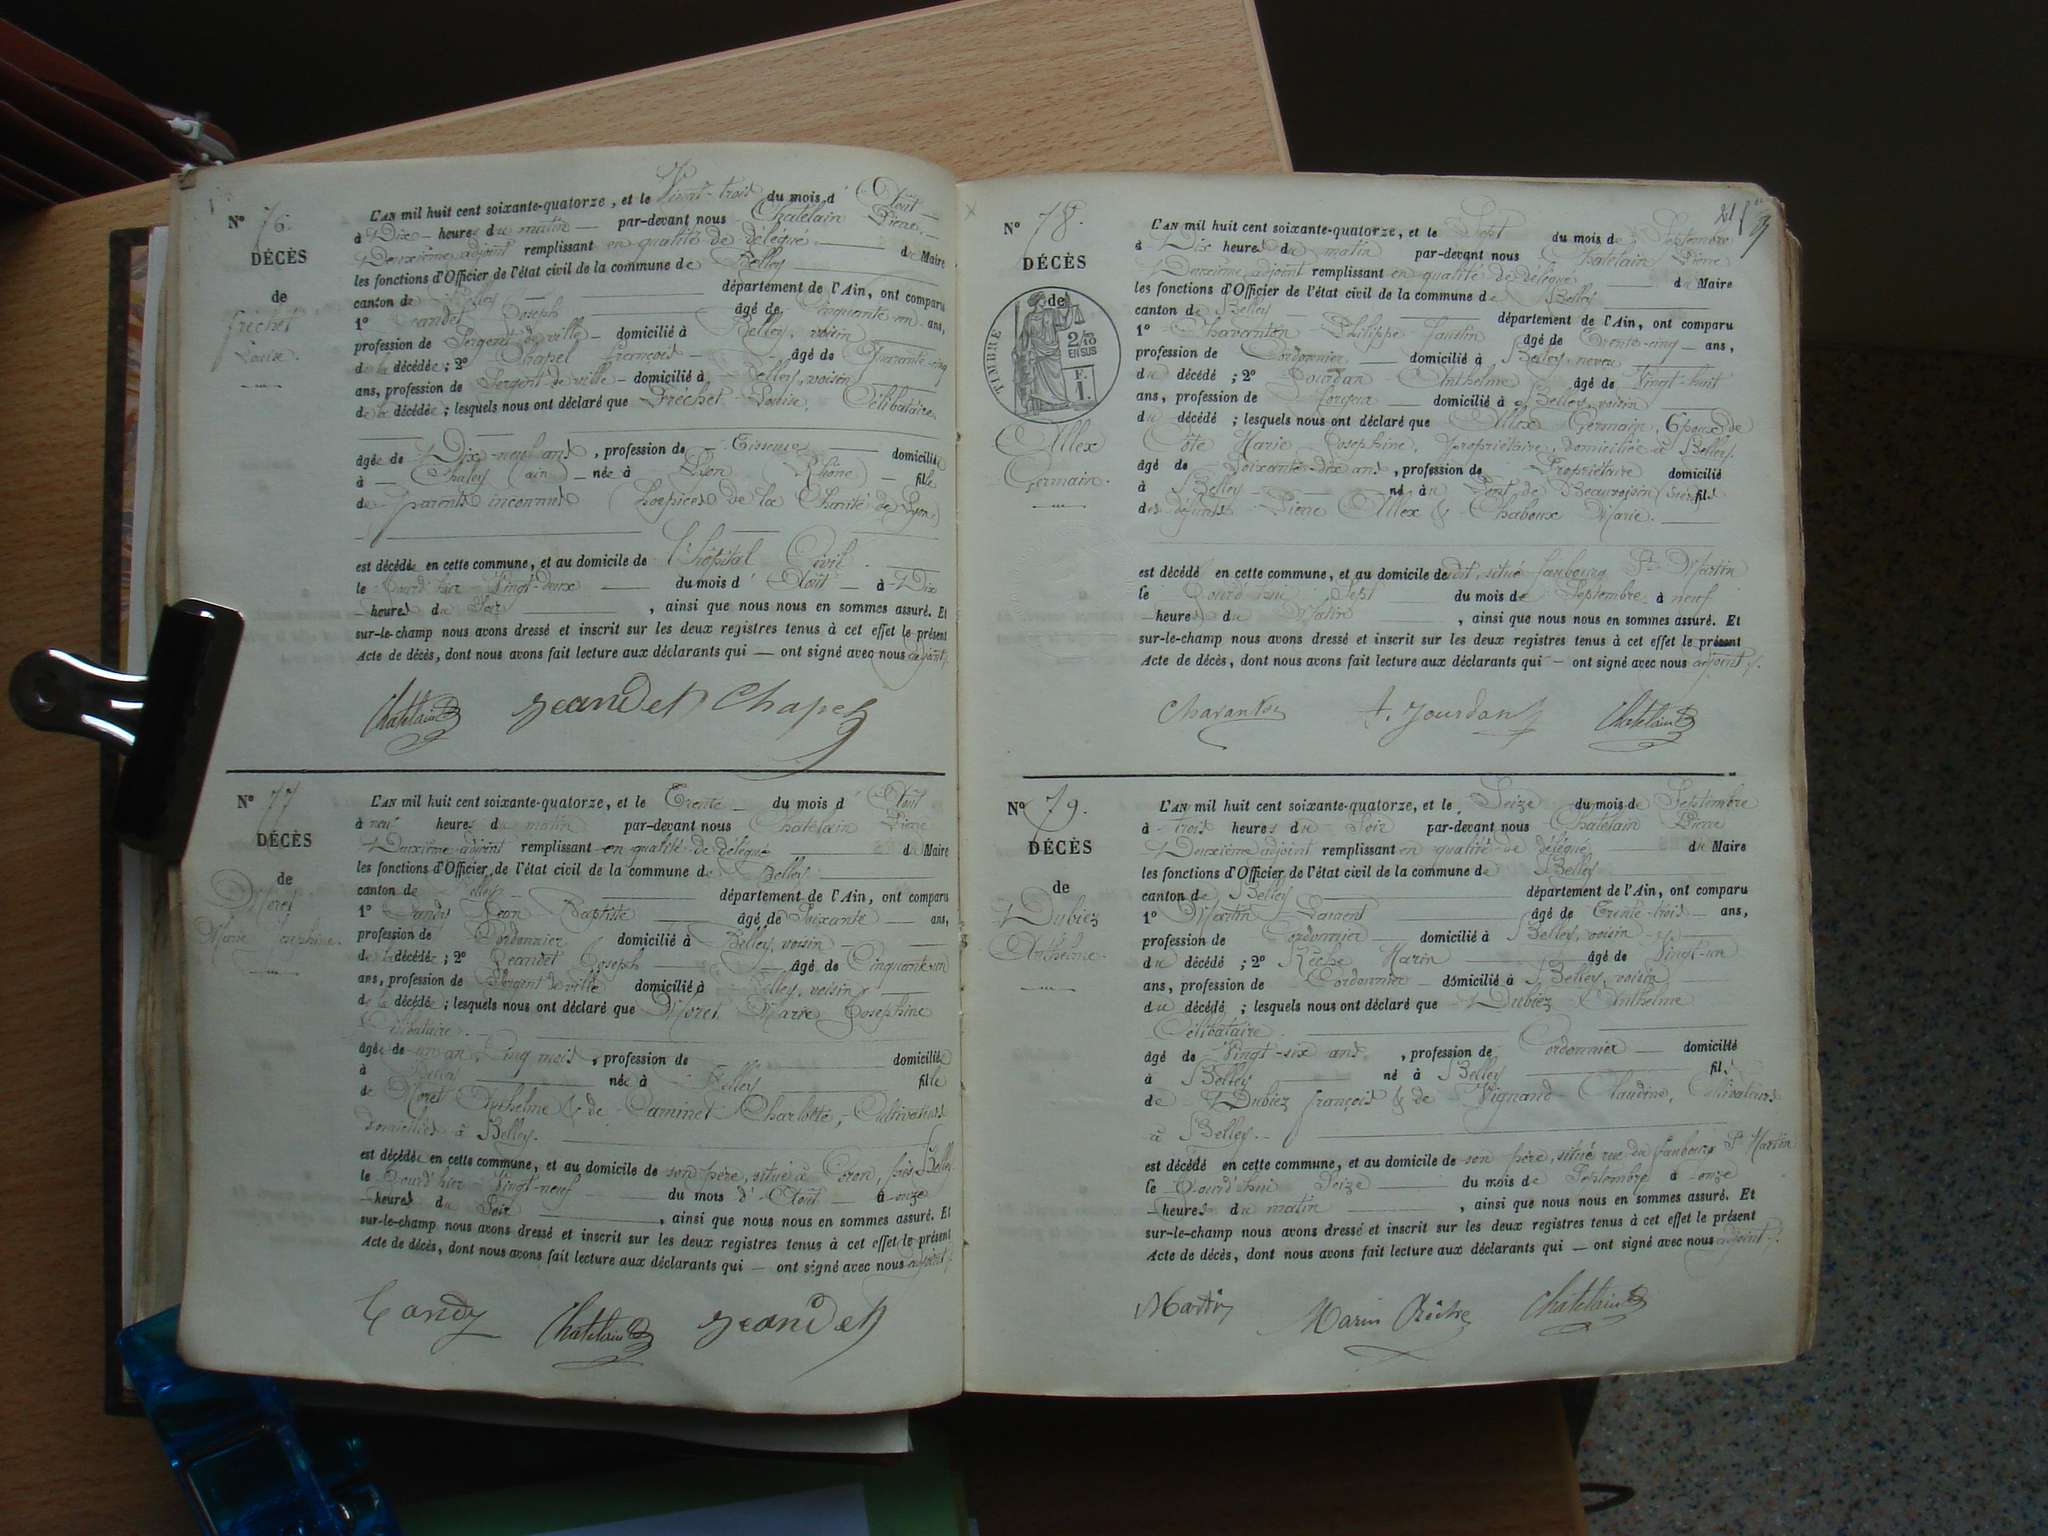 N° 76.
DÉCÈS
de
Fréchet
Louise.
L'AN mil huit cent soixante-quatorze, et le Vingt-trois du mois d' Août
à Dix heures du matin par-devant nous Chatelain Pierre
Deuxième adjoint remplissant en qualité de délégué du Maire
les fonctions d'Officier de l'état civil de la commune de Belley
canton de Belley département de l'Ain, ont comparu
1° Jeandet Joseph âgé de Cinquante-un ans,
profession de Sergent de ville domicilié à Belley, voisin
de la décédée ; 2° Chapel François âgé de Quarante-cinq
ans, profession de Sergent de ville domicilié à Belley, voisin
de la décédée ; lesquels nous ont déclaré que Fréchet Louise, Célibataire
âgée de Dix-neuf ans, profession de Tisseuse domiciliée
à Chaley (ain) née à Lyon (Rhône) fille
de parents inconnus (hospices de la Charité de Lyon)
est décédée en cette commune, et au domicile de l'hôpital Civil
le Jourd'hier Vingt-deux du mois d' Août à Dix
heures du Soir, ainsi que nous nous en sommes assuré. Et
sur-le-champ nous avons dressé et inscrit sur les deux registres tenus à cet effet le présent
Acte de décès, dont nous avons fait lecture aux déclarants qui — ont signé avec nous adjoint.
Chatelain Jeandet Chapel
N° 77
DÉCÈS
de
Moret
Marie Josephine.
L'AN mil huit cent soixante-quatorze, et le Trente du mois d' Août
à neuf heures du matin par-devant nous Chatelain Pierre
Deuxième adjoint remplissant en qualité de délégué du Maire
les fonctions d'Officier de l'état civil de la commune de Belley
canton de Belley département de l'Ain, ont comparu
1° Jean Baptiste âgé de Soixante ans,
profession de Cordonnier domicilié à Belley, voisin
de la décédée ; 2° Jeandet Joseph âgé de Cinquante-un
ans, profession de Sergent de ville domicilié à Belley, voisin
de la décédée ; lesquels nous ont déclaré que Moret Marie Josephine
Célibataire.
âgée de un an Cinq mois, profession de domiciliée
à Belley née à Belley fille
de Moret Anthelme & de Caminet Charlotte, Cultivateurs
domiciliés à Belley.
est décédée en cette commune, et au domicile de son père, situé à Coron, près Belley
le Jourd'hier Vingt-neuf du mois d' Août à onze
heures du Soir, ainsi que nous nous en sommes assuré. Et
sur-le-champ nous avons dressé et inscrit sur les deux registres tenus à cet effet le présent
Acte de décès, dont nous avons fait lecture aux déclarants qui — ont signé avec nous adjoint.
Chatelain Jeandet
N° 78.
DÉCÈS
de
TIMBRE
2/10
EN SUS
F.
1.
Allex
Germain.
L'AN mil huit cent soixante-quatorze, et le Sept du mois de Septembre
à Dix heures du matin par-devant nous Chatelain Pierre
Deuxième adjoint remplissant en qualité de délégué du Maire
les fonctions d'Officier de l'état civil de la commune de Belley
canton de Belley département de l'Ain, ont comparu
1° Charanton Philippe Faustin âgé de Trente-cinq ans,
profession de Cordonnier domicilié à Belley, neveu
du décédé ; 2° Jourdan Anthelme âgé de Vingt-huit
ans, profession de Forgeur domicilié à Belley, voisin
du décédé ; lesquels nous ont déclaré que Allex Germain, Epoux de
Côte Marie Josephine, propriétaire, domiciliée à Belley.
âgé de Soixante-dix ans, profession de Propriétaire domicilié
à Belley né au Pont de Beauvoisin (Isère) fils
des défunts Pierre Allex & Chaboux Marie.
est décédé en cette commune, et au domicile dudit, situé faubourg St Martin
le Jourd'hui Sept du mois de Septembre à neuf
heures du Matin, ainsi que nous nous en sommes assuré. Et
sur-le-champ nous avons dressé et inscrit sur les deux registres tenus à cet effet le présent
Acte de décès, dont nous avons fait lecture aux déclarants qui — ont signé avec nous adjoint.
Charanton A. Jourdan Chatelain
N° 79.
DÉCÈS
de
Dubiez
Anthelme.
L'AN mil huit cent soixante-quatorze, et le Seize du mois de Septembre
à trois heures du Soir par-devant nous Chatelain Pierre
Deuxième adjoint remplissant en qualité de délégué du Maire
les fonctions d'Officier de l'état civil de la commune de Belley
canton de Belley département de l'Ain, ont comparu
1° Martin Laurent âgé de Trente-trois ans,
profession de Cordonnier domicilié à Belley, voisin
du décédé ; 2° Marin âgé de Vingt-un
ans, profession de Cordonnier domicilié à Belley, voisin
du décédé ; lesquels nous ont déclaré que Dubiez Anthelme
Célibataire.
âgé de Vingt-six ans, profession de Cordonnier domicilié
à Belley né à Belley fils
de Dubiez François & de Vignand Claudine, Cultivateurs
à Belley.
est décédé en cette commune, et au domicile de son père, situé rue du faubourg St Martin
le Jourd'hui Seize du mois de Septembre à onze
heures du matin, ainsi que nous nous en sommes assuré. Et
sur-le-champ nous avons dressé et inscrit sur les deux registres tenus à cet effet le présent
Acte de décès, dont nous avons fait lecture aux déclarants qui — ont signé avec nous adjoint.
Martin Marin Chatelain